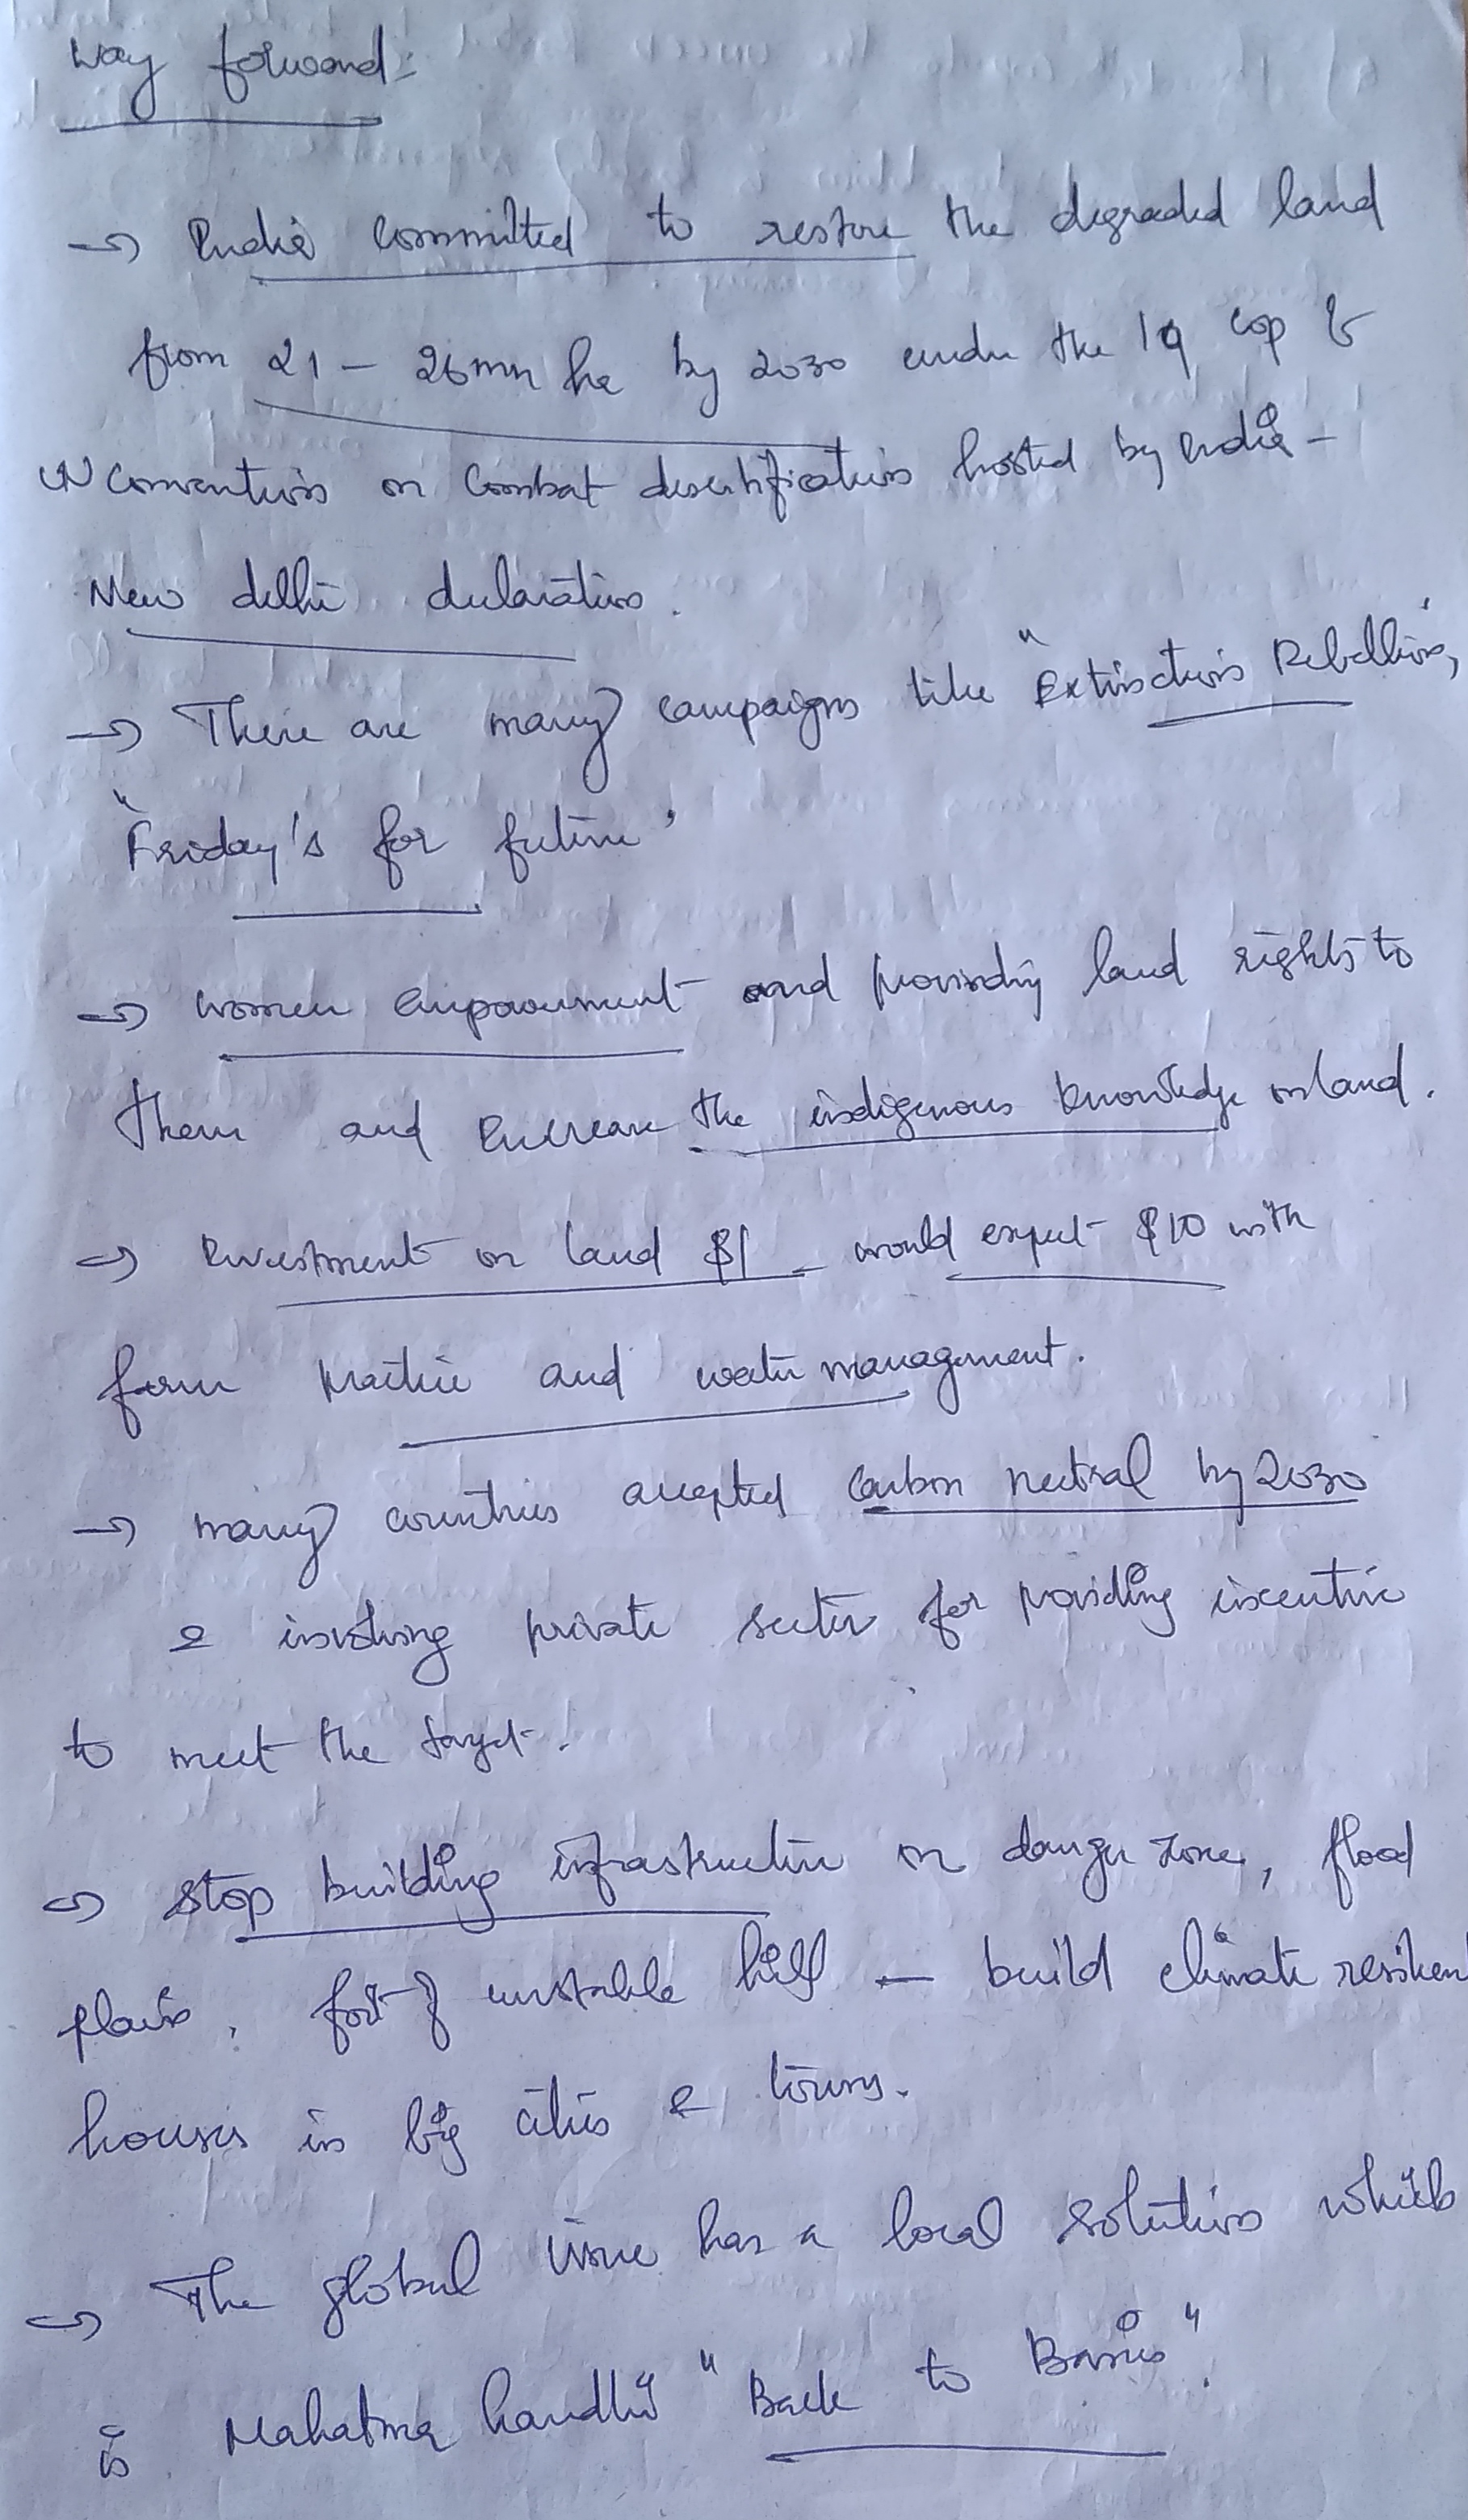 Way forward:
→ India committed to restore the degraded land
from 21 - 26 mn ha by 2030 under the 14 cop &
UN Convention on Combat desertification hosted by India -
New delhi declaration.
→ There are many campaigns like "Extinction Rebellion",
"Friday's for future"
→ women empowerment and providing land rights to
them and Increase the indigenous knowledge on land.
→ Investment on land $1 - would expect $10 with
farm practice and water management.
→ many countries accepted Carbon neutral by 2030
& involving private sector for providing incentive
to meet the target.
→ stop building infrastructure on danger zone, flood
plain, foot of unstable hill - build climate resilient
houses in big cities & towns.
→ The global issue has a local solution which
is Mahatma Gandhi "Back to Basics".